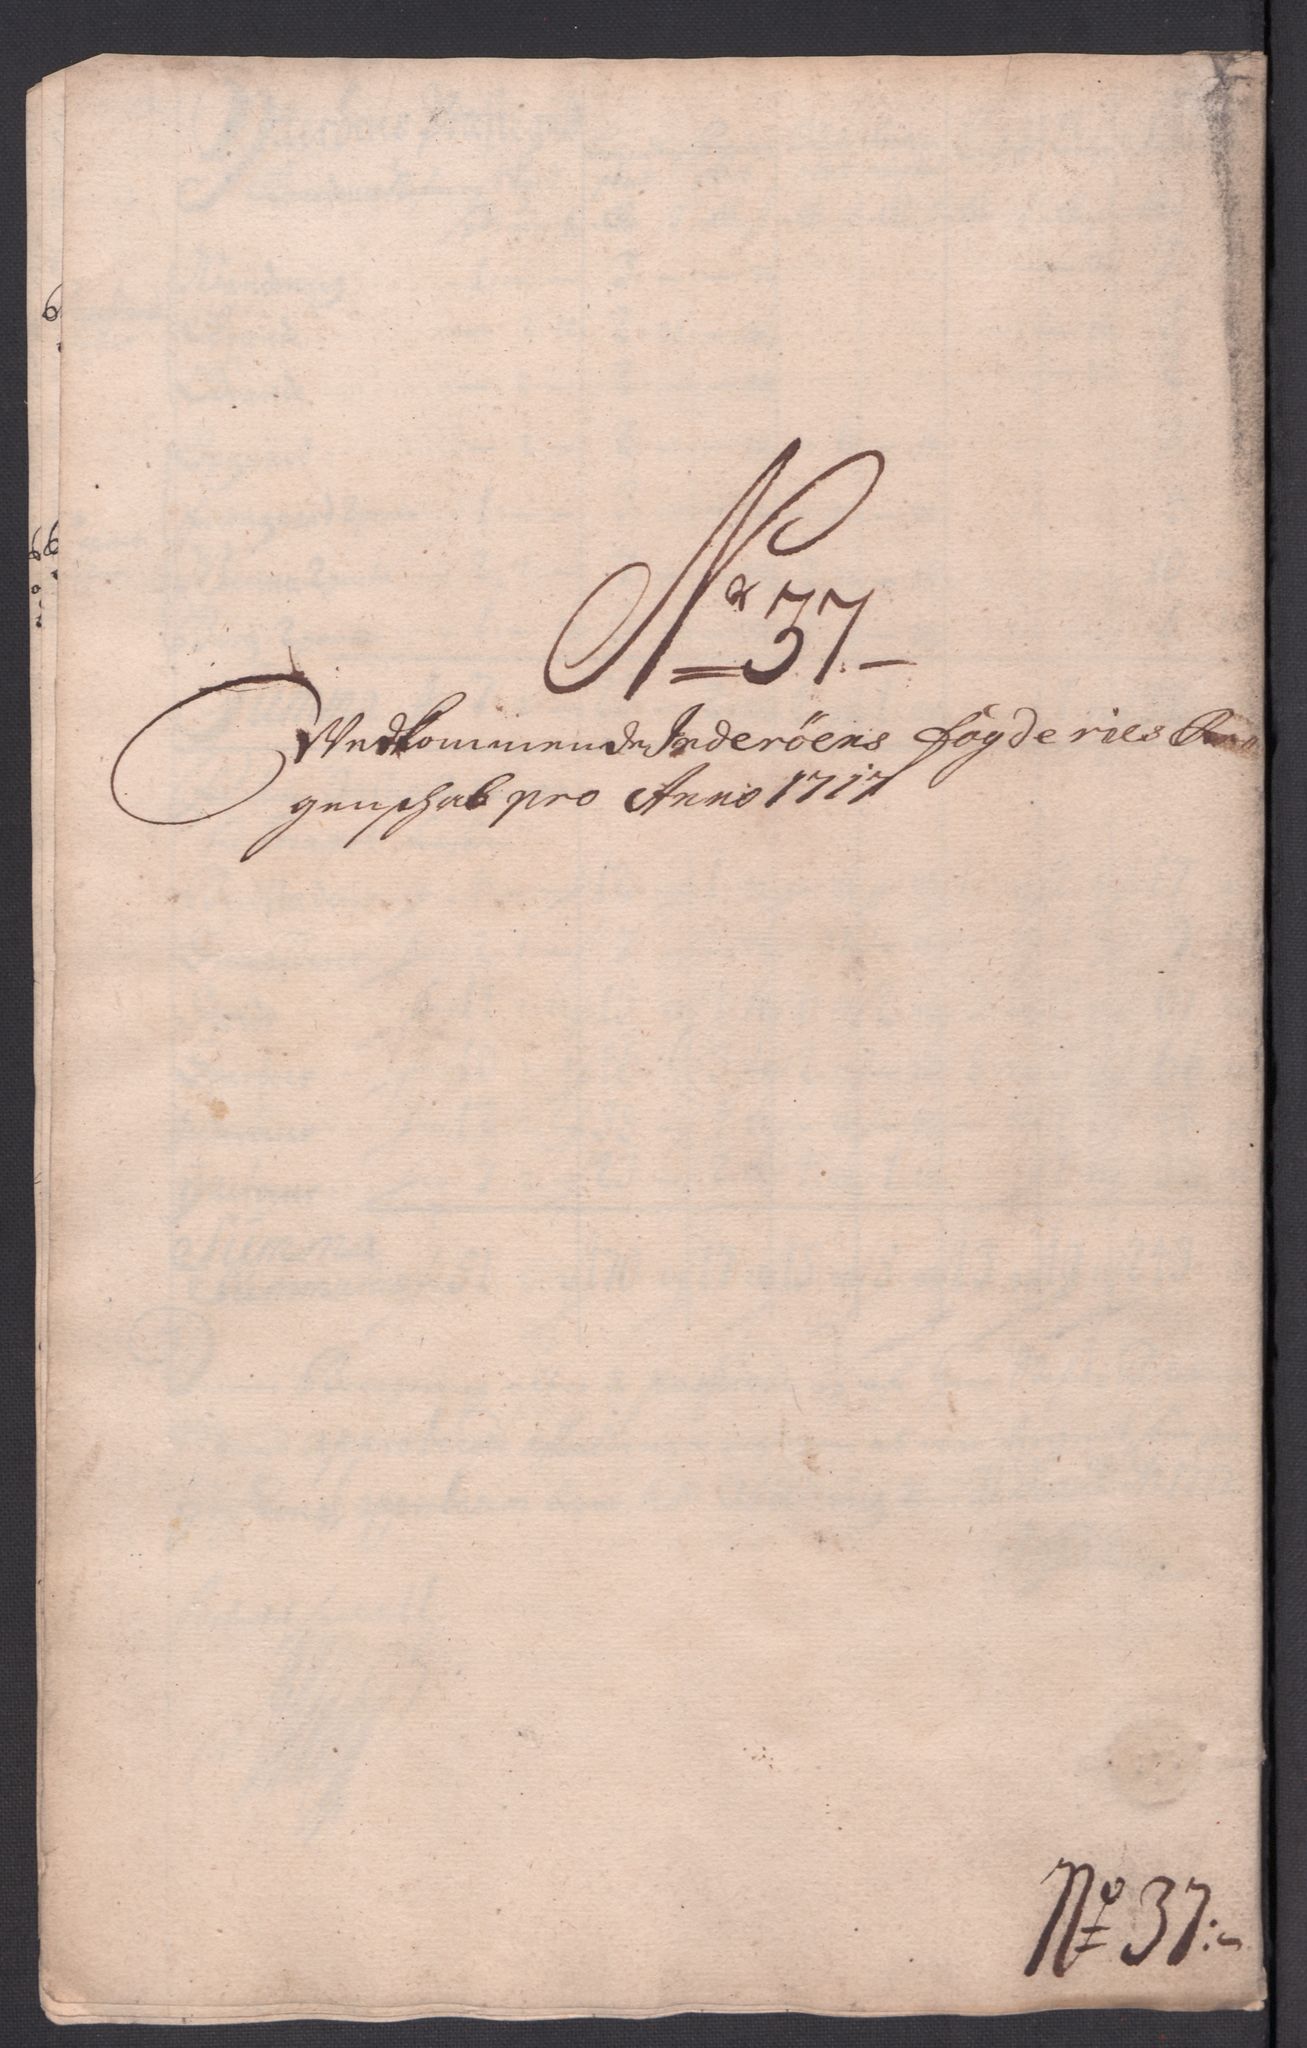 No 37.
Vedkommende Inderöens fögderies Re
genschab pro Anno 1717
No 37: